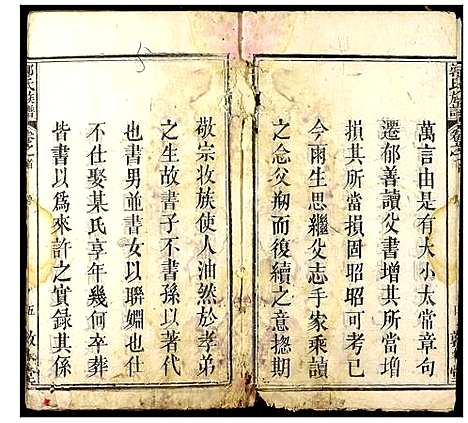 萬言由是有大小太常章句
遷郁善讀父書增其所當增
損其所當損固昭昭可考已
今雨生思繼父志手家乘讀
之念父刱而復續之意揔期
敬宗牧族使人油然於孝弟
之生故書子不書孫以著代
也書男並書女以聯婣也仕
不仕娶某氏享年幾何卒葬
皆書以為來許之實錄其係
氏族譜
五